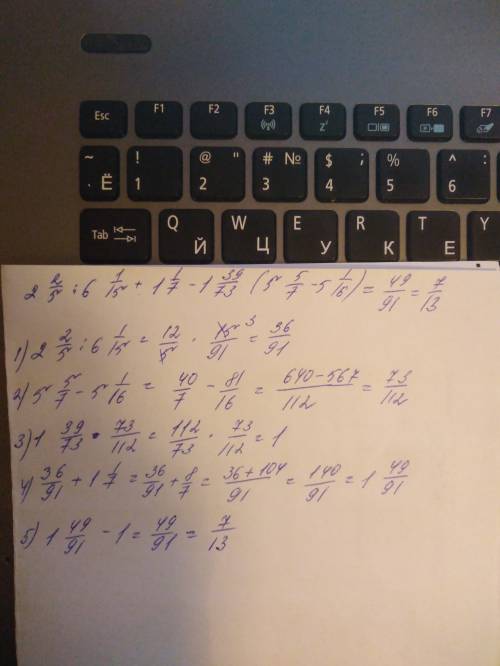 Esc F1 F2 F3 F4 F5 F6 F7
~ ! @ " # № $ ; % ^ :
· Ё 1 2 3 4 5 6
Tab Q W E R T
Й Ц У К Е
2 2/5 : 6 1/15 + 1 1/7 - 1 39/73 (5 5/7 - 5 1/16) = 49/91 = 7/13
1) 2 2/5 : 6 1/15 = 12/5 · 15/91 3 = 36/91
2) 5 5/7 - 5 1/16 = 40/7 - 81/16 = 640-567/112 = 73/112
3) 1 39/73 · 73/112 = 112/73 · 73/112 = 1
4) 36/91 + 1 1/7 = 36/91 + 8/7 = 36+104/91 = 140/91 = 1 49/91
5) 1 49/91 - 1 = 49/91 = 7/13